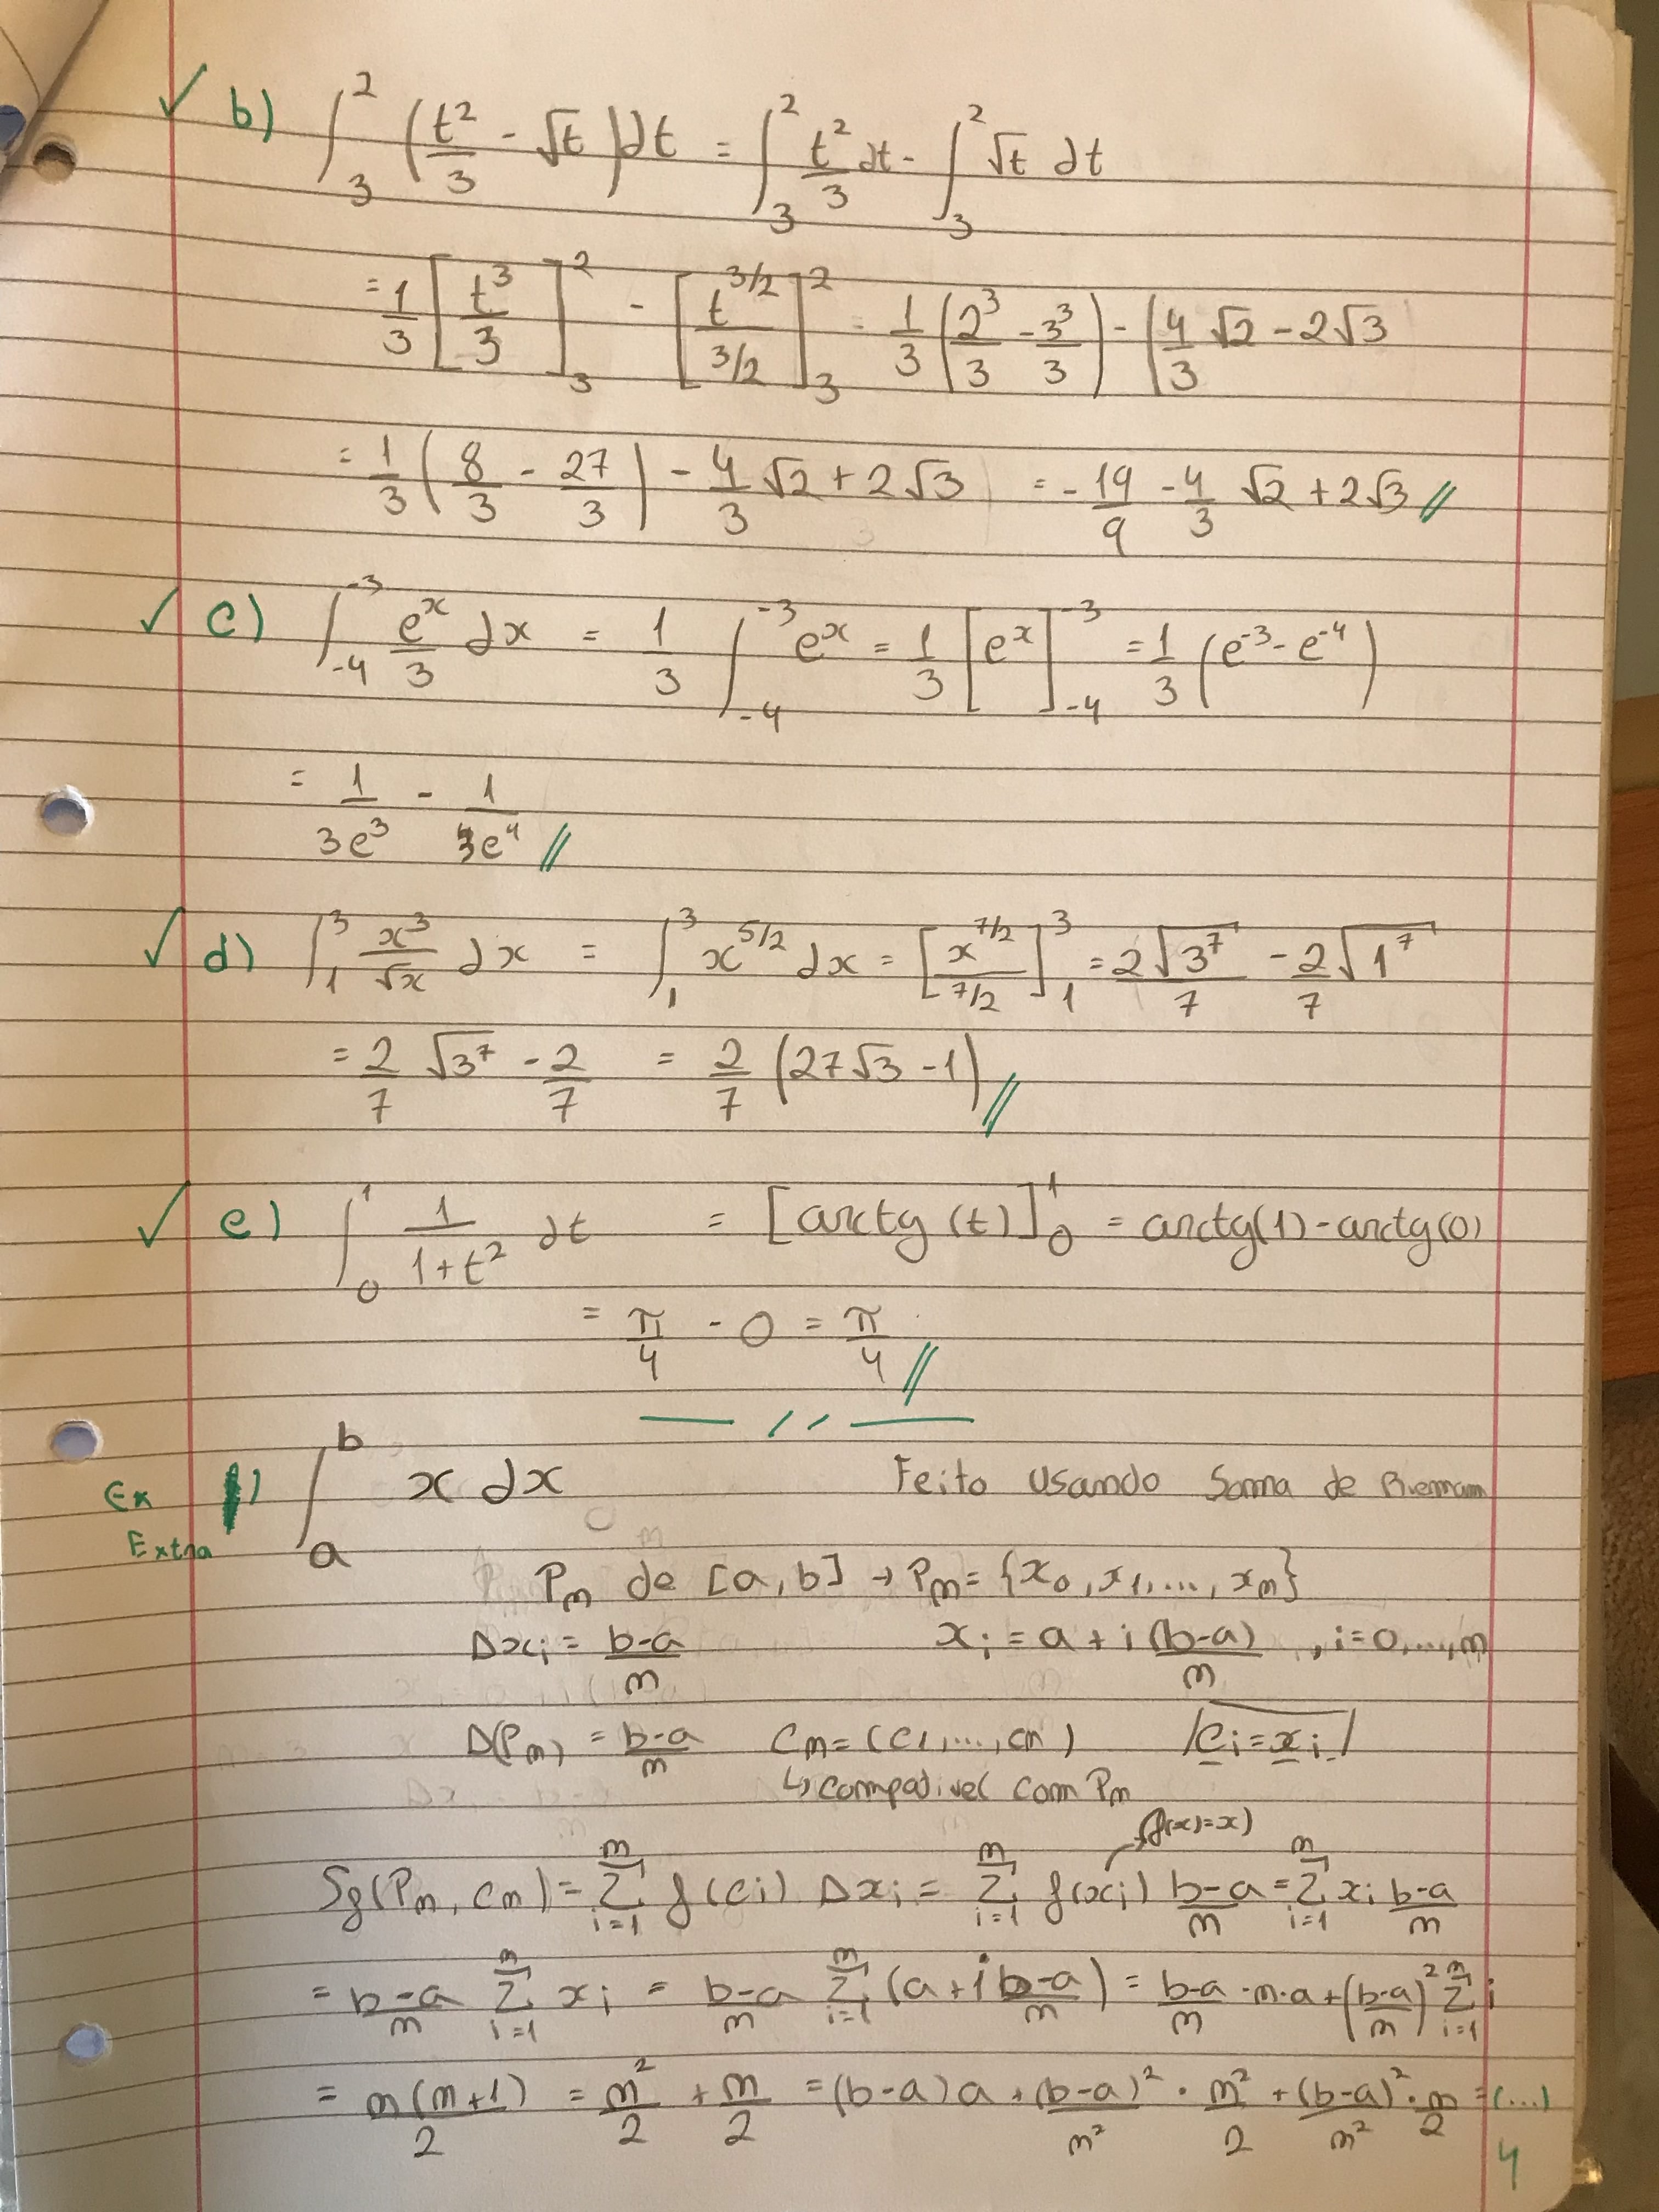 ✓ b) ∫₃² (t²/3 - √t) dt = ∫₃² t²/3 dt - ∫₃² √t dt
= 1/3 [t³/3]₃² - [t^(3/2)/(3/2)]₃² = 1/3 (2³/3 - 3³/3) - (4/3 √2 - 2√3
= 1/3 (8/3 - 27/3) - 4/3 √2 + 2√3 = -19/9 - 4/3 √2 + 2√3 //
✓ c) ∫₋₄⁻³ eˣ/3 dx = 1/3 ∫₋₄⁻³ eˣ = 1/3 [eˣ]₋₄⁻³ = 1/3 (e⁻³ - e⁻⁴)
= 1/3e³ - 1/3e⁴ //
✓ d) ∫₁³ x³/√x dx = ∫₁³ x^(5/2) dx = [x^(7/2)/(7/2)]₁³ = 2√3⁷/7 - 2/7 √1⁷
= 2/7 √3⁷ - 2/7 = 2/7 (27√3 - 1) //
✓ e) ∫₀¹ 1/(1+t²) dt = [arctg (t)]₀¹ = arctg(1) - arctg(0)
= π/4 - 0 = π/4 //
Ex Extra 1) ∫ₐᵇ x dx Feito usando Soma de Riemam
Pm de [a, b] → Pm = {x₀, x₁, ..., xm}
Δxᵢ = b-a/m xᵢ = a + i (b-a)/m , i=0,...,m
Δ(Pm) = b-a/m Cm = (c₁, ..., cm) /cᵢ = xᵢ/
↳ compativel com Pm
(f(x)=x)
Sf(Pm, cm) = Σᵢ₌₁ᵐ f(cᵢ) Δxᵢ = Σᵢ₌₁ᵐ f(xᵢ) b-a/m = Σᵢ₌₁ᵐ xᵢ b-a/m
= b-a/m Σᵢ₌₁ᵐ xᵢ = b-a/m Σᵢ₌₁ᵐ (a + i b-a/m) = b-a/m · m · a + (b-a/m)² Σᵢ₌₁ᵐ i
= m(m+1)/2 = m²/2 + m/2 = (b-a)a + (b-a)²/m² · m²/2 + (b-a)²/m² · m/2 = (...)
4